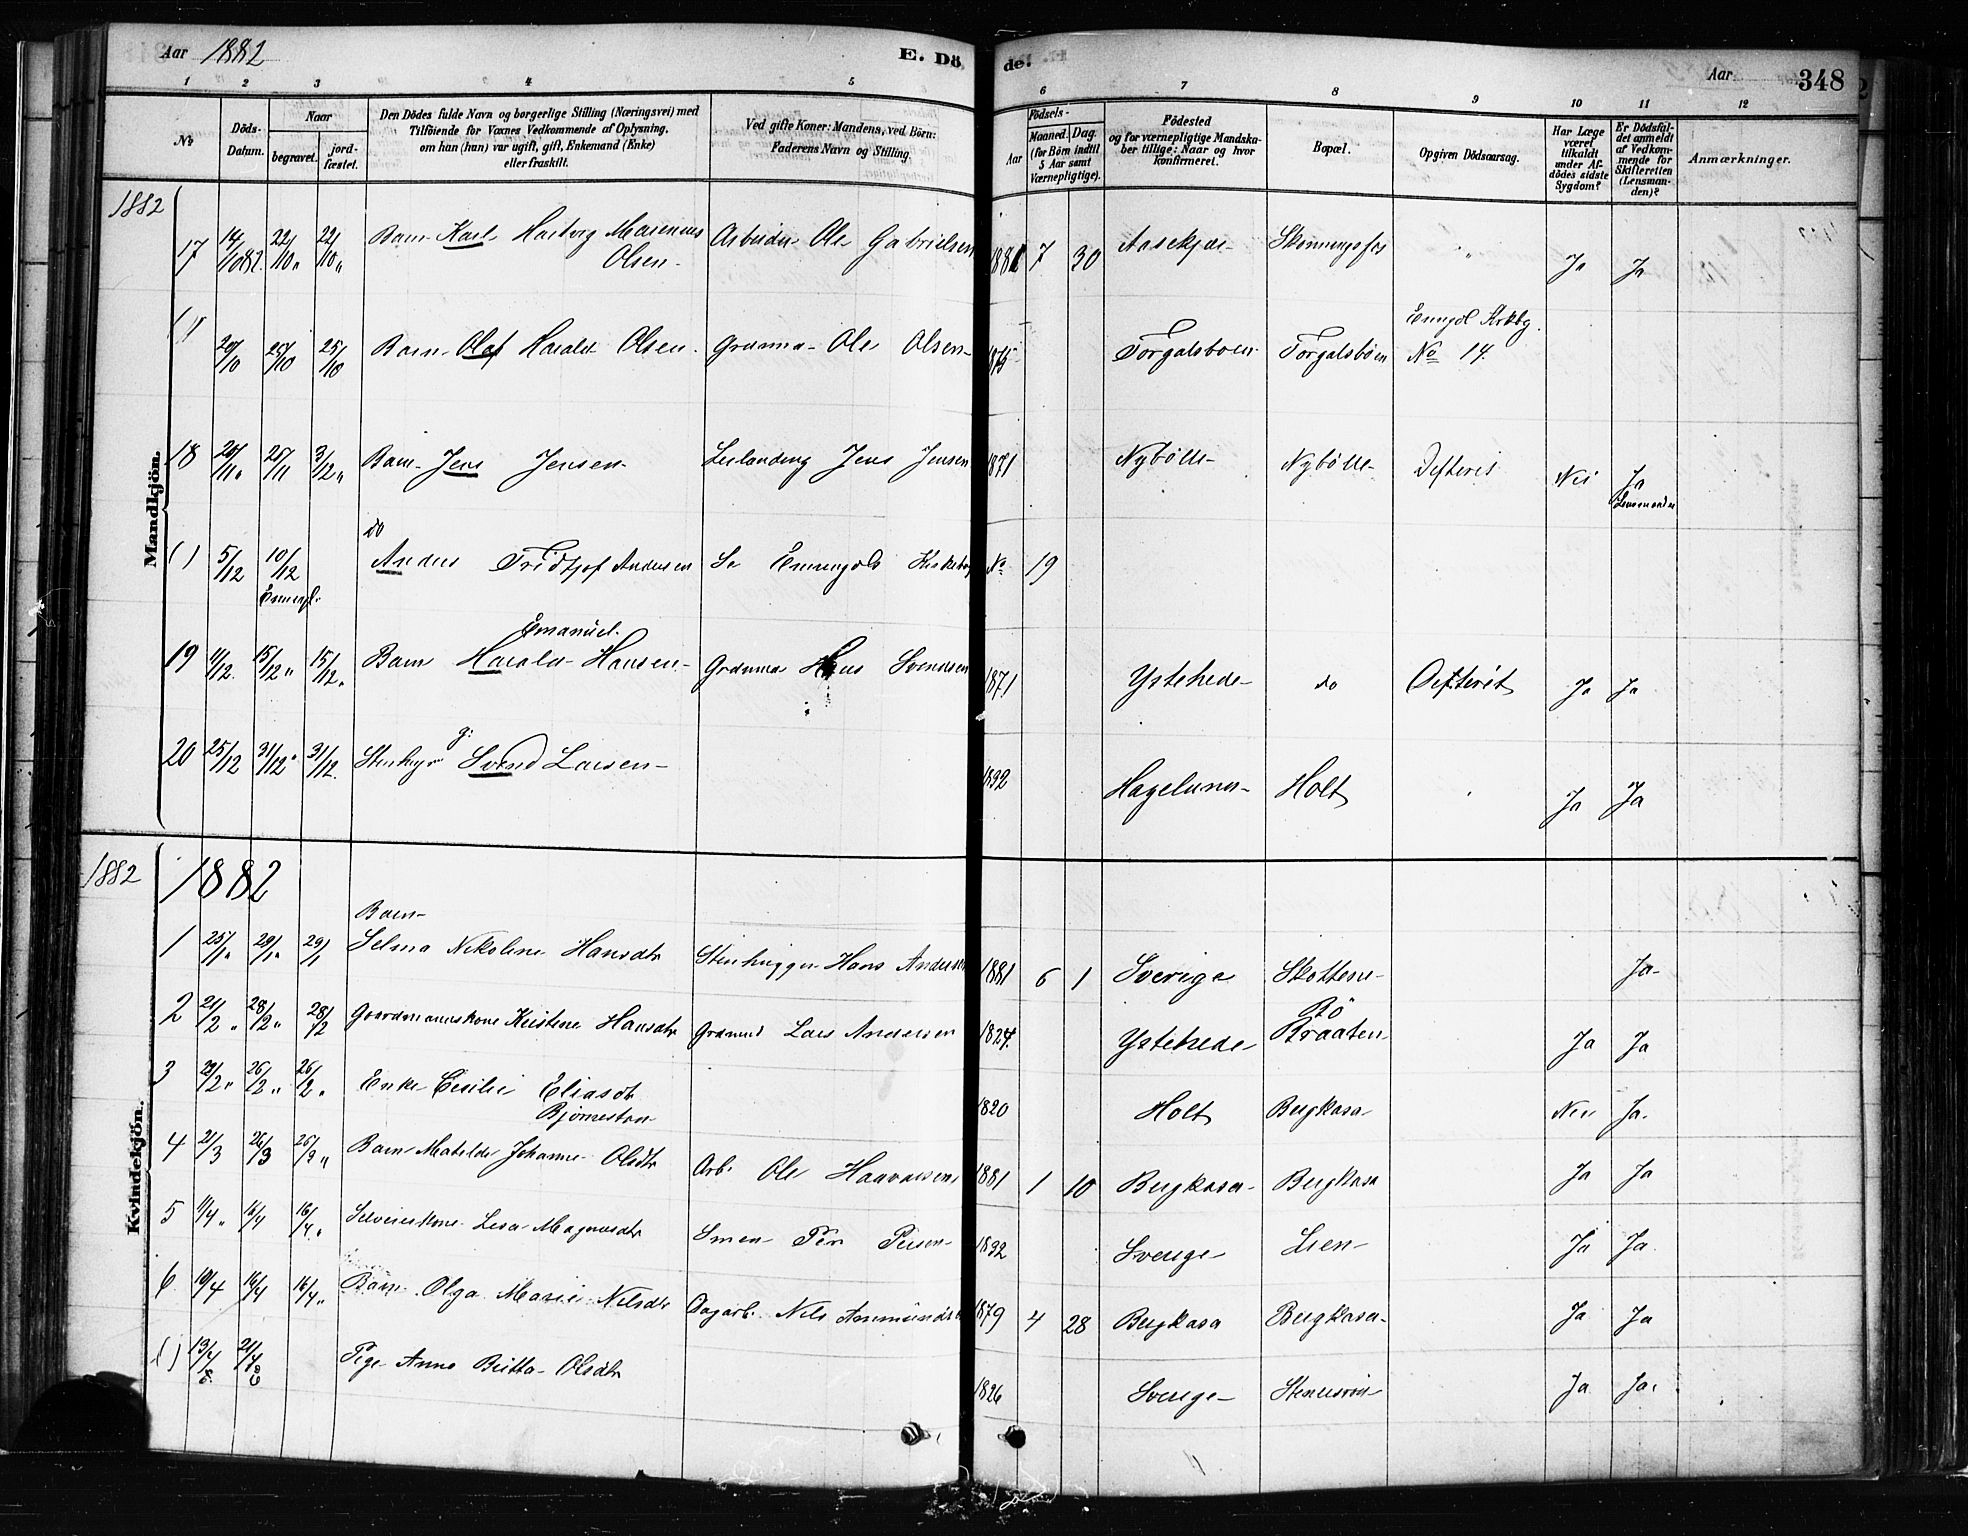 Aar 1882 E. Dö de. Aar 348
1 2 3 4 5 6 7 8 9 10 11 12
No
Döds-
Datum.
Naar
begravet.
jord-
fæstet.
Den Dödes fulde Navn og borgerlige Stilling (Næringsvei) med
Tilföiende for Voxnes Vedkommende af Oplysning,
om han (hun) var ugift, gift, Enkemand (Enke)
eller fraskilt.
Ved gifte Koner: Mandens, ved Börn:
Faderens Navn og Stilling.
Födsels-
Aar
Maaned.
Dag.
(for Börn indtil
5 Aar samt
Værnepligtige).
Födested
og for værnepligtige Mandska-
ber tillige: Naar og hvor
konfirmeret.
Bopæl.
Opgiven Dödsaarsag.
Har Læge
været
tilkaldt
under Af-
dödes sidste
Sygdom?
Er Dödsfal-
det anmeldt
af Vedkom-
mende for
Skifteretten
(Lensman-
den)?
Anmærkninger.
1882
Mandkjön.
17 14/10 82. 22/10 " 22/10 " Barn Karl Hartvig Olsen Arbeider Ole Gabrielsen 1881 7 30 Aasekjær Skonningsfos " Ja Ja
( ) 20/10 25/10 25/10 Barn Olaf Harald Olsen Grdmna Ole Olsen 1875 Torgalsboen Torgalsböen Enngdl Kirkbg No 14.
18 20/11 " 25/11 3/12 " Barn Jens Jensen Leilænding Jens Jensen 1871 Nybölle Nybölle Difterit Nei Ja Lensmanden
( ) 5/12 10/12 Enningd. do Anders Fridtjof Andersen Se Enningdls Kirkebog No 19
19 11/12. 15/12 " 15/12 " Barn Harald Emanuel Hansen Grdmna Hans Svendsen 1871 Ystehede do Difterit Ja Ja
20 25/12 31/12 " 31/12. Stenhugr g. Svend Larsen 1832 Hagelund Holt Ja Ja
1882 1882
Kvindekjön.
1 25/1 " 29/1 " 29/1 Barn Selma Nikoline Hansdtr Stenhugger Hans Andersen 1881 6 1 Sverige Skottene Ja
2 21/2 " 28/2 " 28/2 Gaardmannskone Kristine Hansdtr Grdmnd Lars Andersen 1824. Ystehede Bö Braaten Ja Ja
3 22/2 " 26/2 " 26/2 " Enke Cecilie Eliasdtr Bjørnestan 1820 Holt Bergkasa Nei Ja.
4 21/3 26/3 26/3 " Barn Matilde Johanne Olsdtr Arb. Ole Haavarsen 1881 1 10 Bergkasa Bergkasa Ja Ja
5 11/4 " 16/4 16/4 " Selveierkone Lisa Magnusdtr Per Persen 1832 Sverige Lien Ja Ja
6 10/4 16/4 16/4 " Barn Olga Marie Nilsdtr Dagarb. Nils 1879 4 28 Bergkasa Bergkasa Ja Ja
( ) 13/4 21/4 Pige Anne Britta Olsdtr 1826 Sverige Ja Ja.